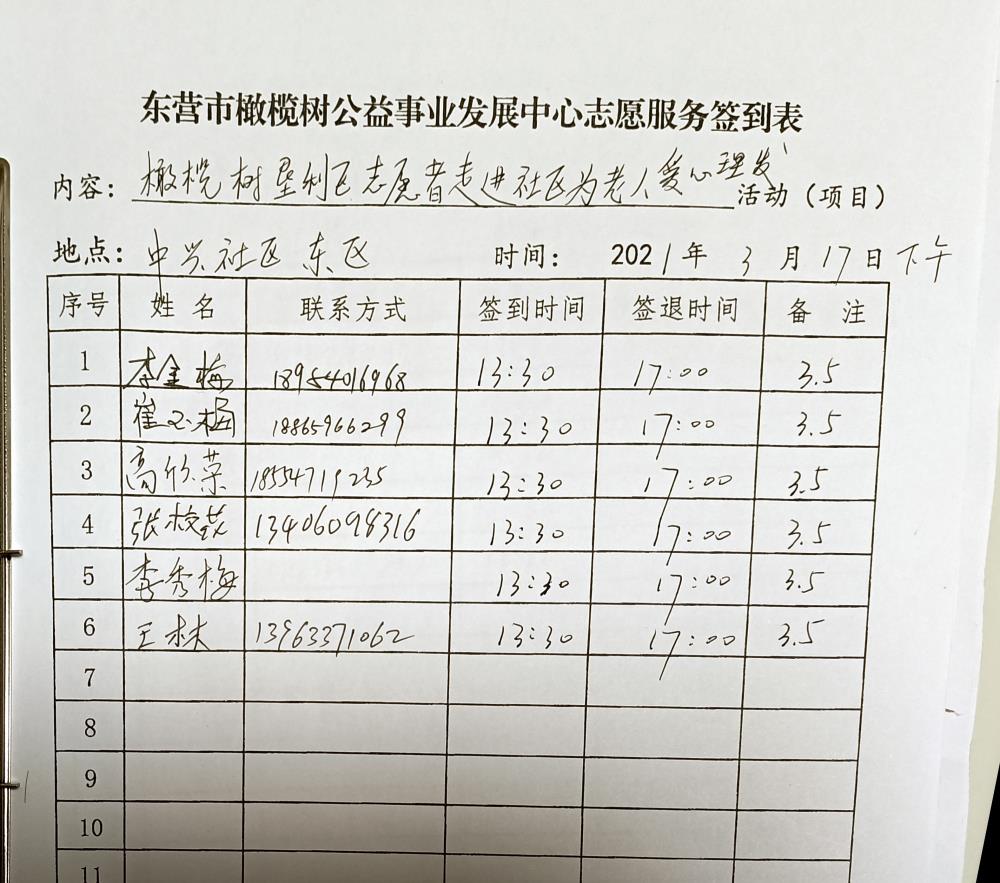 东营市橄榄树公益事业发展中心志愿服务签到表
内容：橄榄树垦利区志愿者走进社区为老人爱心理发活动（项目）
地点：中兴社区东区 时间：2021年3月17日下午
序号 姓名 联系方式 签到时间 签退时间 备注
1 李金梅 18954016968 13:30 17:00 3.5
2 崔玉梅 18865966299 13:30 17:00 3.5
3 高欣荣 18554719235 13:30 17:00 3.5
4 张 13406098316 13:30 17:00 3.5
5 李秀梅 13:30 17:00 3.5
6 王 13963371062 13:30 17:00 3.5
7
8
9
10
11